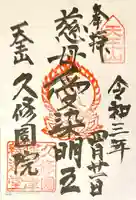 奉拝
令和三年
四月廿一日
慈母愛染明王
天王山
久修園院